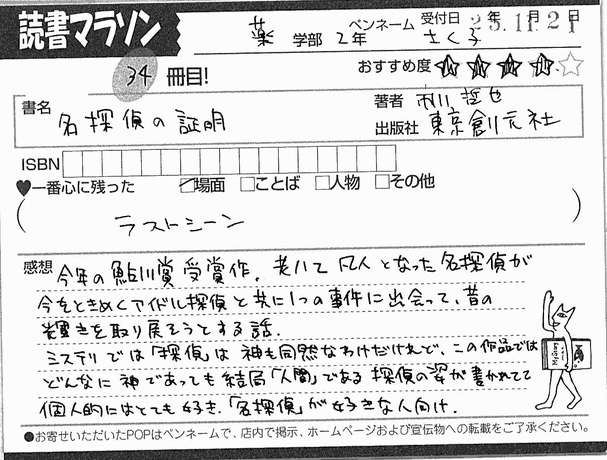 読書マラソン
薬 学部 2年 ペンネーム さく子 受付日 23.年11.月21日
34 冊目!
おすすめ度
書名 名探偵の証明
著者 市川 哲也
出版社 東京創元社
ISBN
♥一番心に残った □場面 □ことば □人物 □その他
( ラストシーン )
感想 今年の鮎川賞受賞作。老いて凡人となった名探偵が
今をときめくアイドル探偵と共に1つの事件に出会って、昔の
輝きを取り戻そうとする話。
ミステリでは「探偵」は神も同然なわけだけれど、この作品では
どんなに神であっても結局「人間」である探偵の姿が書かれてて
個人的にはとても好き。「名探偵」が好きな人向け。
●お寄せいただいたPOPはペンネームで、店内で掲示、ホームページおよび宣伝物への転載をご了承ください。